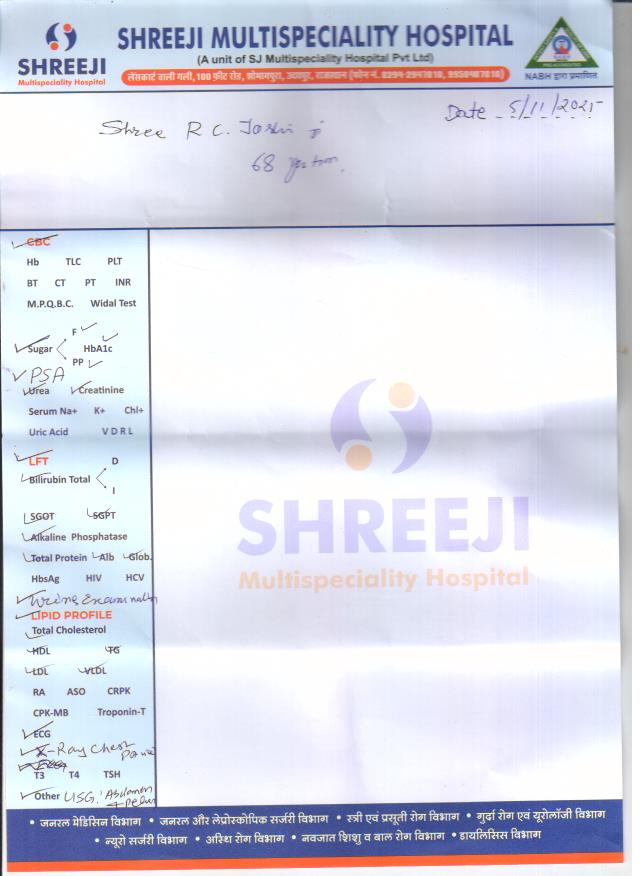 SHREEJI
Multispeciality Hospital
SHREEJI MULTISPECIALITY HOSPITAL
(A unit of SJ Multispeciality Hospital Pvt Ltd)
लेंसकार्ट वाली गली, 100 फ़ीट रोड, शोभागपुरा, उदयपुर, राजस्थान (फोन नं. 0294-2947010, 9950487010)
NABH द्वारा प्रमाणित
Date 5/11/2025
Shree R C. Joshi ji
68 yr
CBC
Hb TLC PLT
BT CT PT INR
M.P.Q.B.C. Widal Test
F
Sugar HbA1c
PP
PSA
Urea Creatinine
Serum Na+ K+ Chl+
Uric Acid V D R L
LFT
D
Bilirubin Total
I
SGOT SGPT
Alkaline Phosphatase
Total Protein Alb Glob.
HbsAg HIV HCV
Urine Examination
LIPID PROFILE
Total Cholesterol
HDL TG
LDL VLDL
RA ASO CRPK
CPK-MB Troponin-T
ECG
X-Ray Chest
T3 T4 TSH
Other USG. Abdomen
+ Pelvis
SHREEJI
Multispeciality Hospital
• जनरल मेडिसिन विभाग • जनरल और लेप्रोस्कोपिक सर्जरी विभाग • स्त्री एवं प्रसूती रोग विभाग • गुर्दा रोग एवं यूरोलॉजी विभाग
• न्यूरो सर्जरी विभाग • अस्थि रोग विभाग • नवजात शिशु व बाल रोग विभाग • डायलिसिस विभाग